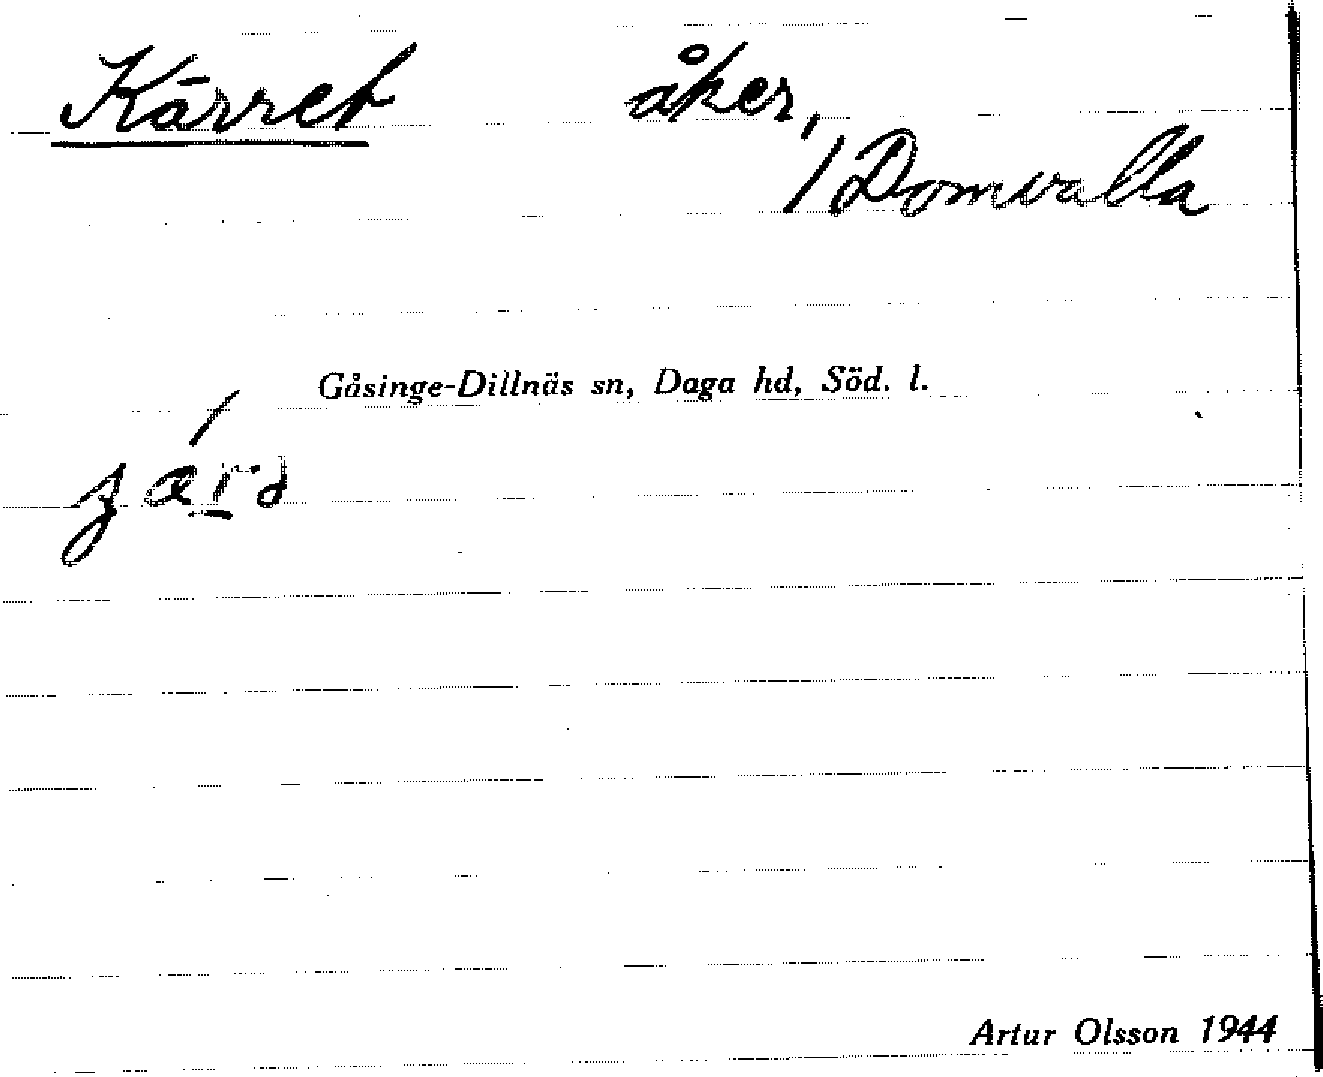 Kärret åker,
/ Domvalla
Gåsinge-Dillnäs sn, Daga hd, Söd. l.
Artur Olsson 1944